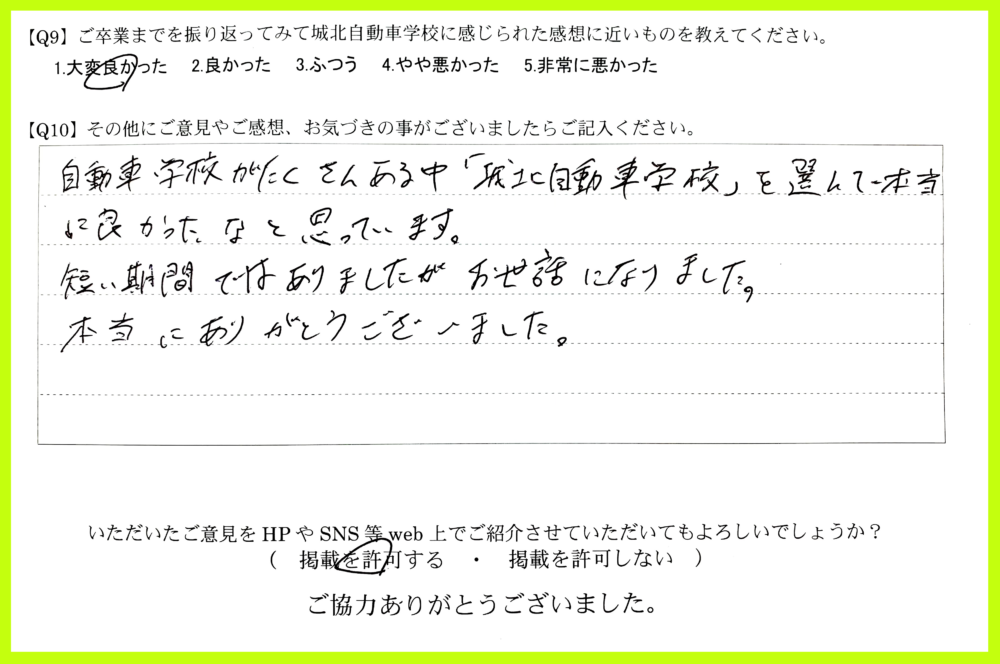 【Q9】ご卒業までを振り返ってみて城北自動車学校に感じられた感想に近いものを教えてください。
1.大変良かった 2.良かった 3.ふつう 4.やや悪かった 5.非常に悪かった
【Q10】その他にご意見やご感想、お気づきの事がございましたらご記入ください。
自動車学校がたくさんある中「城北自動車学校」を選んで本当
に良かったなと思っています。
短い期間ではありましたがお世話になりました。
本当にありがとうございました。
いただいたご意見をHPやSNS等web上でご紹介させていただいてもよろしいでしょうか？
（ 掲載を許可する ・ 掲載を許可しない ）
ご協力ありがとうございました。